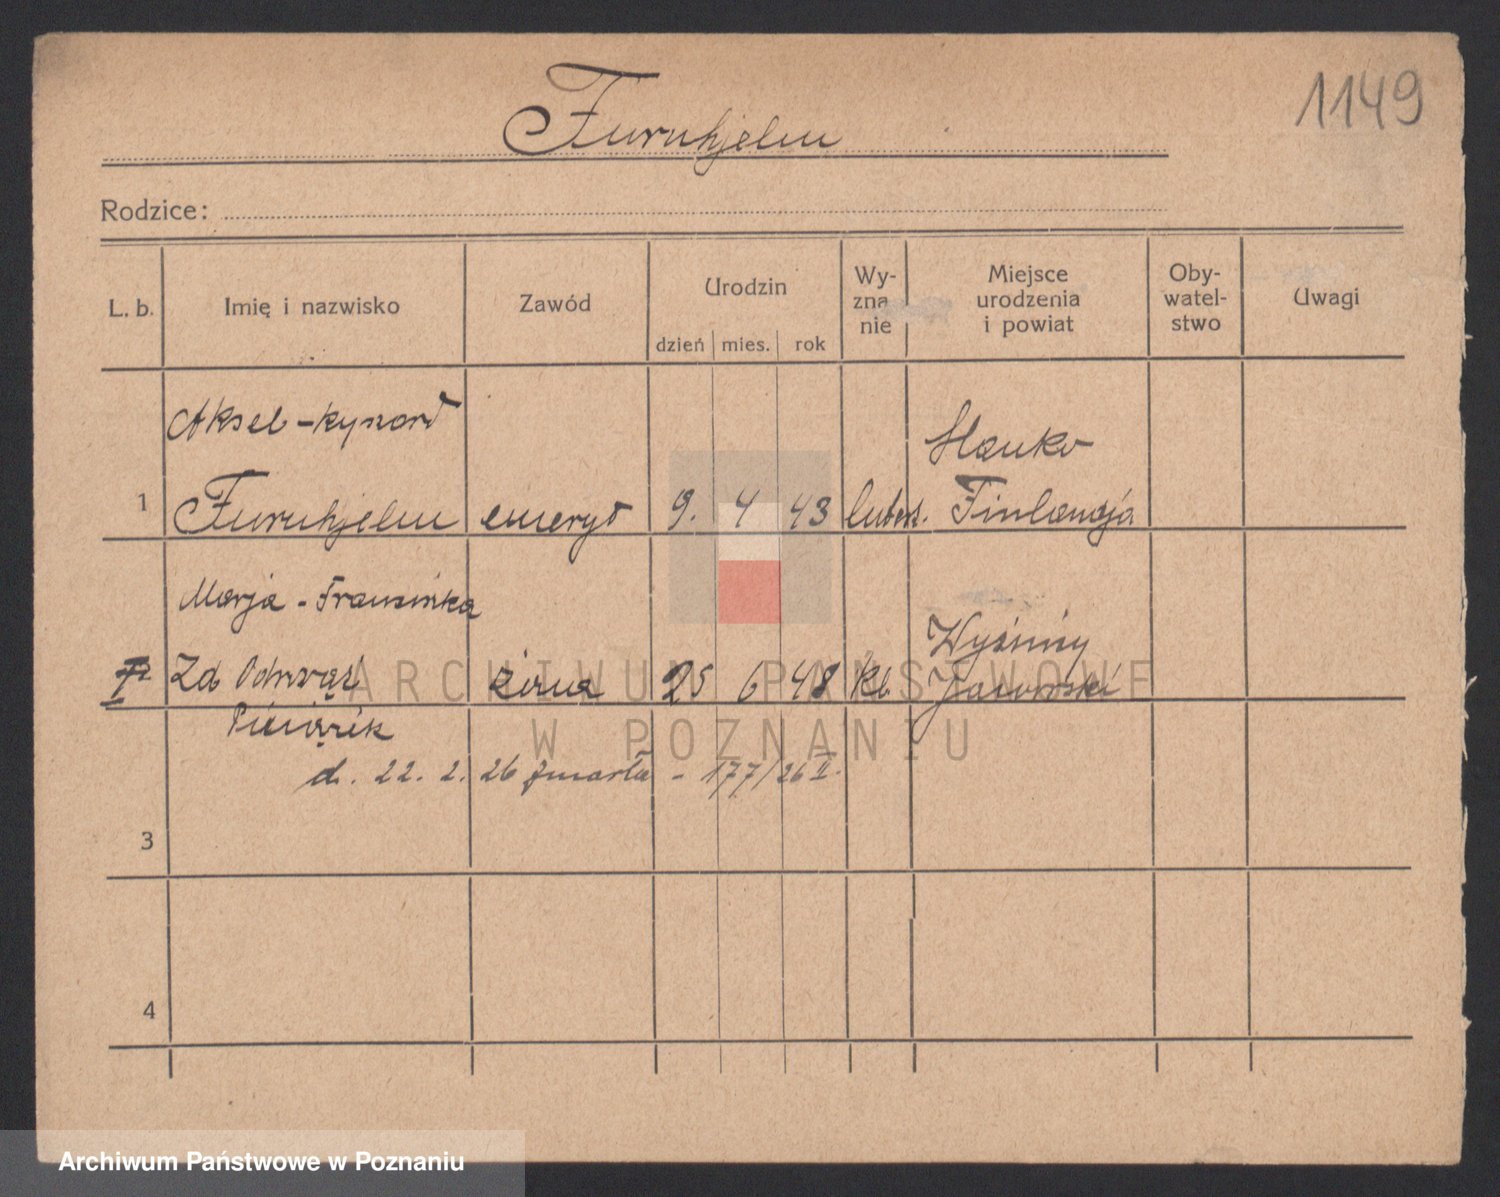 1149
Furuhjelm
Rodzice:
L. b. Imię i nazwisko Zawód Urodzin dzień mies. rok Wy-zna-nie Miejsce urodzenia i powiat Oby-watel-stwo Uwagi
Aksel-Ryszard Hanko
1 Furuhjelm emeryt 9. 4 43 luter. Finlandja
Marja-Franciszka
Zd Odrowąż żona 25 6 48 kt.
Pieniążek
d. 22. 2. 26 zmarła - 177/26 II.
3
4
ARCHIWUM PAŃSTWOWE
W POZNANIU
Archiwum Państwowe w Poznaniu